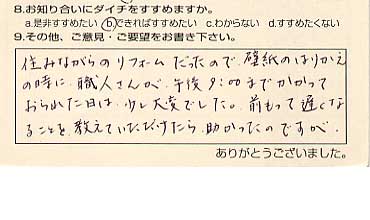 8.お知り合いにダイチをすすめますか。
a.是非すすめたい b.できればすすめたい c.わからない d.すすめたくない
9.その他、ご意見・ご要望をお書き下さい。
住みながらのリフォームだったので、壁紙のはりかえ
の時に、職人さんが、午後9:00までかかって
おられた日は、少し大変でした。前もって遅くな
ることを教えていただけたら、助かったのですが。
ありがとうございました。